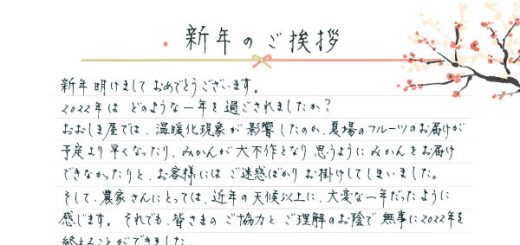 新年のご挨拶
新年明けましておめでとうございます。
2022年は どのような一年を過ごされましたか？
おおしま屋では、温暖化現象が影響したのか、夏場のフルーツのお届けが
予定より早くなったり、みかんが大不作となり 思うようにみかんをお届け
できなかったりと、お客様には ご迷惑ばかり お掛けしてしまいました。
そして、農家さんにとっては、近年の天候以上に、大変な一年だったように
感じます。それでも、皆さまの ご協力と ご理解のお陰で 無事に2022年を
終えることができました